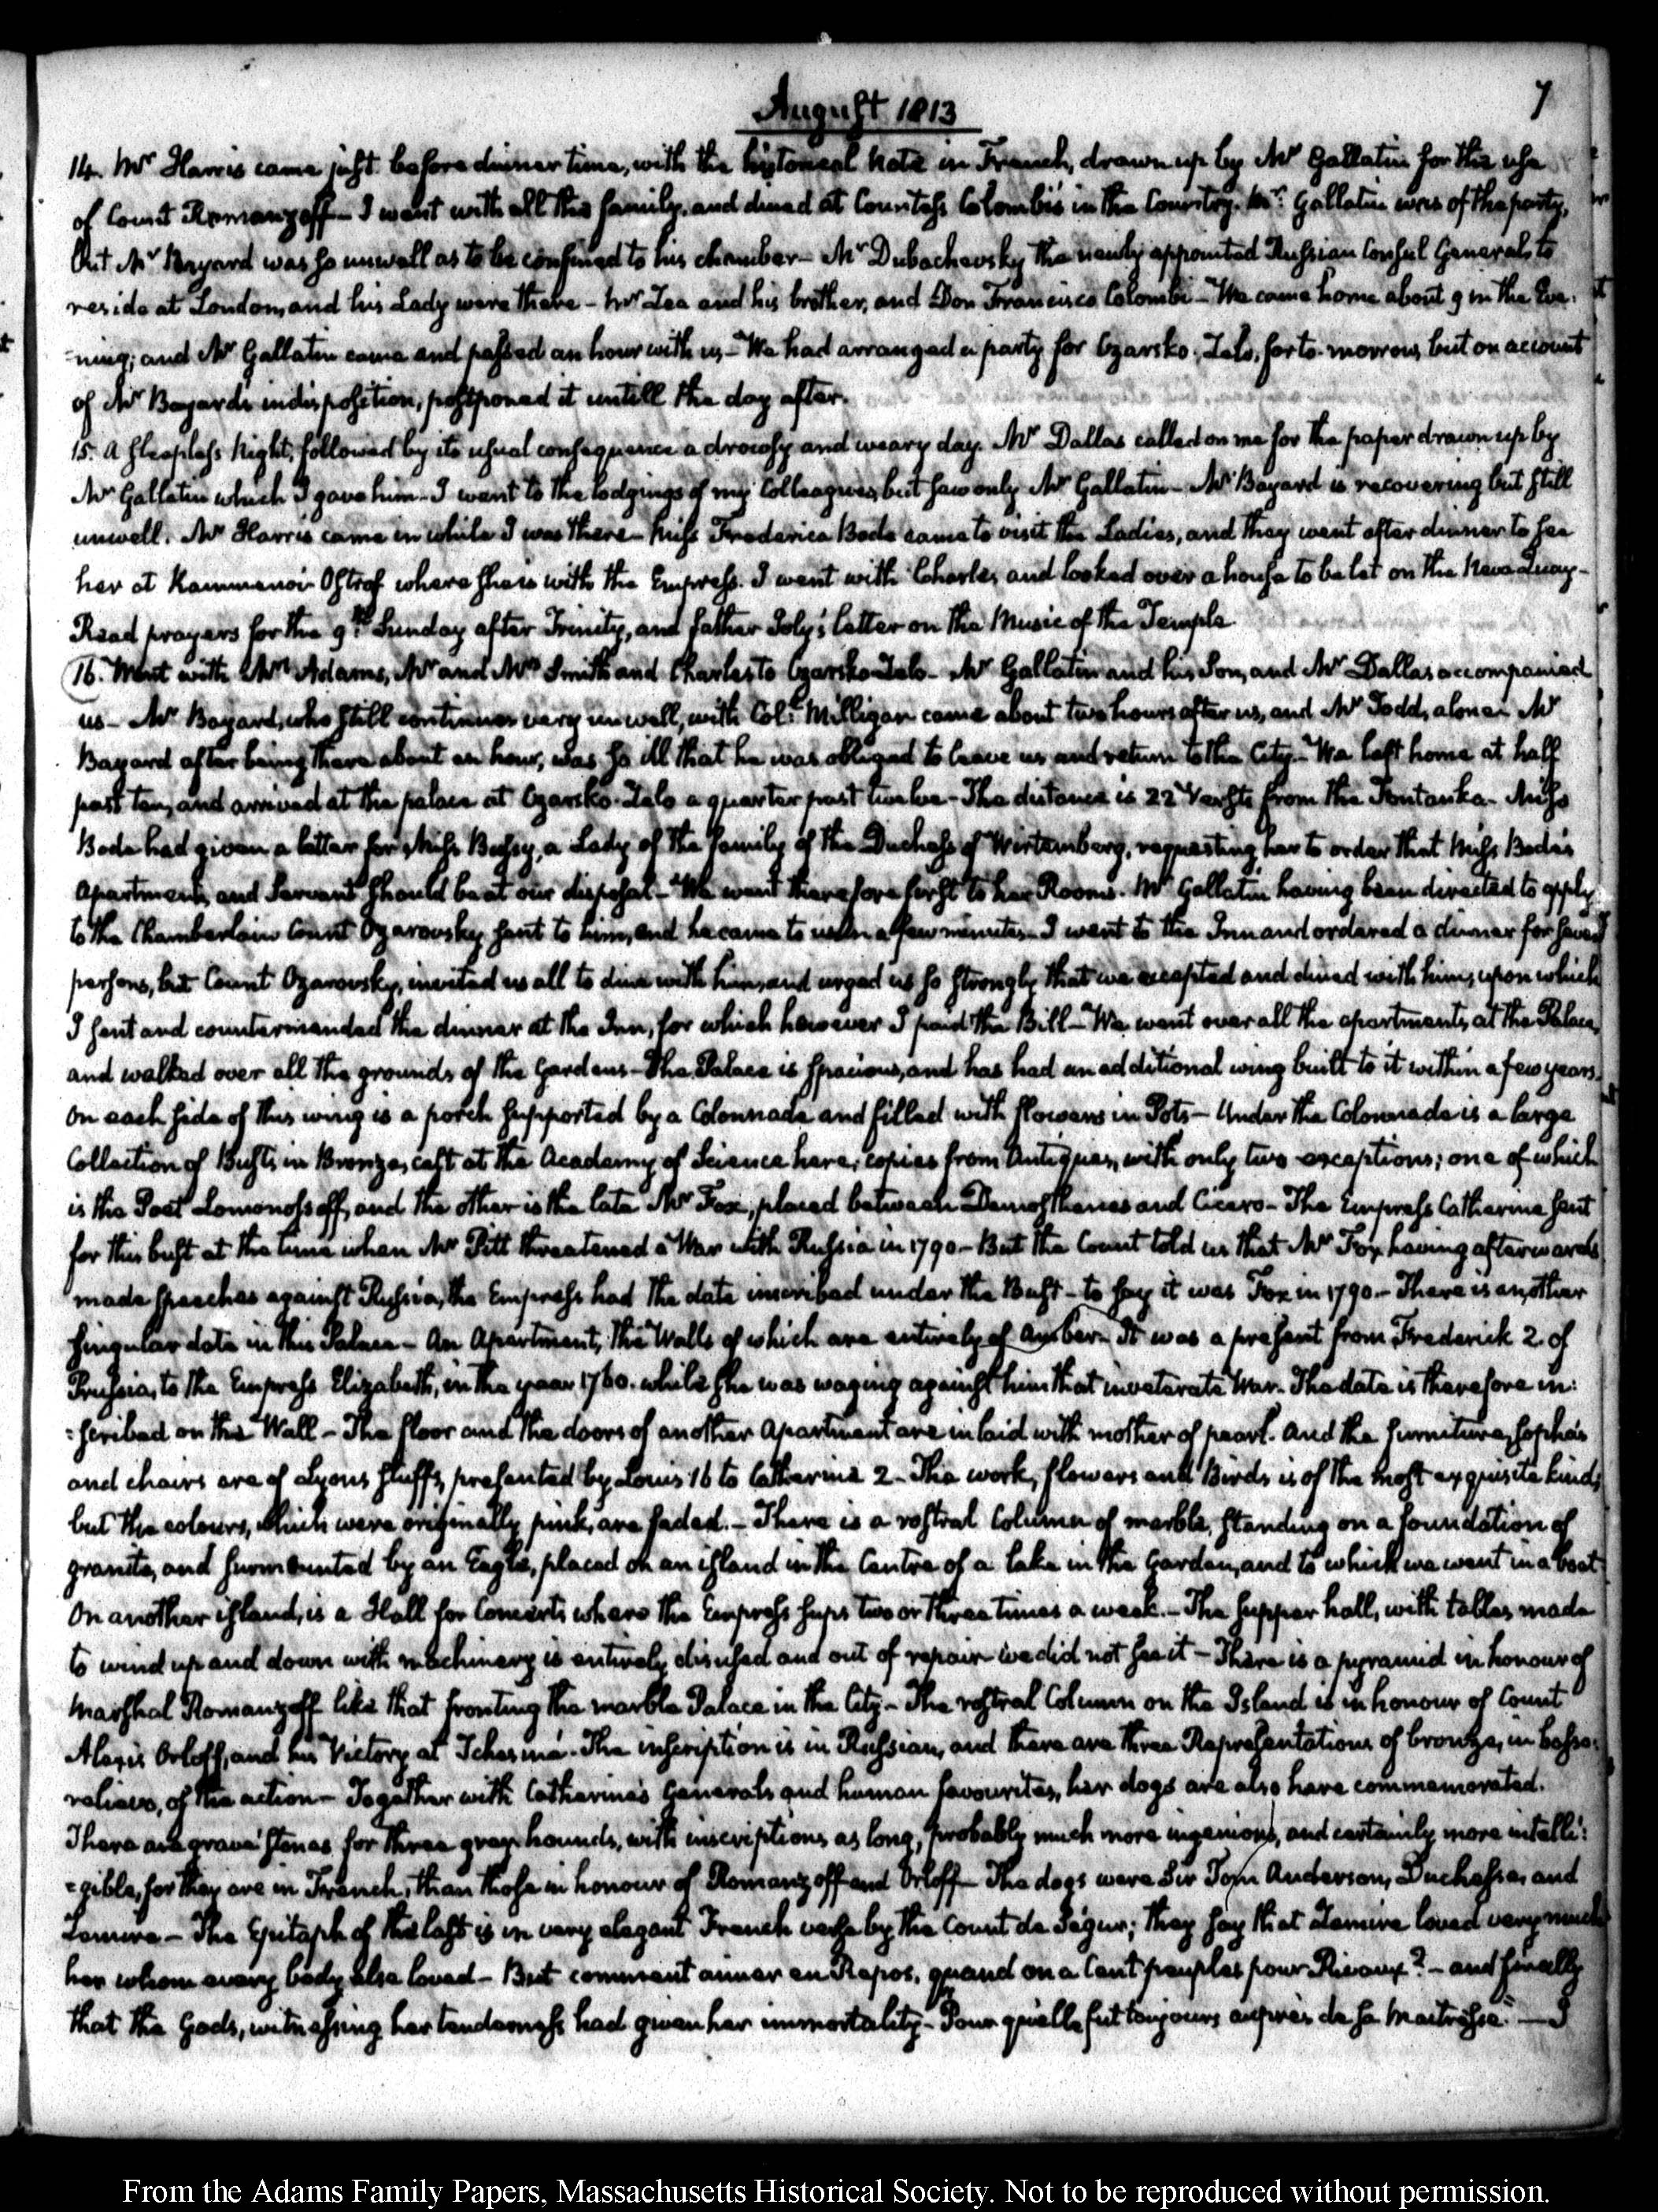 August 1813
7
14. Mr Harris came just before dinner time, with the historical Note in French, drawn up by Mr Gallatin for the use
of Count Romanzoff - I went with all the family, and dined at Countess Colombi's in the Country. Mr Gallatin was of the party,
but Mr Bayard was so unwell as to be confined to his chamber - Mr Dubachevsky the newly appointed Russian Consul General, to
reside at London, and his Lady were there - Mr Zea and his brother, and Don Francisco Colombi - We came home about 9 in the Eve-
-ning; and Mr Gallatin came and passed an hour with us - We had arranged a party for Czarsko-Zelo, for to-morrow, but on account
of Mr Bayard's indisposition, postponed it untill the day after.
15. A sleepless Night, followed by its usual consequence a drowsy and weary day. Mr Dallas called on me for the paper drawn up by
Mr Gallatin which I gave him - I went to the lodgings of my Colleagues, but saw only Mr Gallatin - Mr Bayard is recovering but still
unwell. Mr Harris came in while I was there - Miss Frederica Bode came to visit the Ladies, and they went after dinner to see
her at Kammenoi-Ostrof where she is with the Empress. I went with Charles, and looked over a house to be let on the Neva Quay -
Read prayers for the 9th Sunday after Trinity, and father Joly's letter on the Music of the Temple.
16. Went with Mrs Adams, Mr and Mrs Smith and Charles to Czarsko-Zelo - Mr Gallatin and his Son, and Mr Dallas accompanied
us - Mr Bayard, who still continues very unwell, with Coll Milligan came about two hours after us, and Mr Todd, alone. Mr
Bayard after being there about an hour, was so ill that he was obliged to leave us and return to the City - We left home at half
past ten, and arrived at the palace at Czarsko-Zelo a quarter past twelve - The distance is 22 Versts from the Fontanka - Miss
Bode had given a letter for Miss Bussy, a Lady of the family of the Duchess of Wirtemberg, requesting her to order that Miss Bode's
Apartments, and Servant should be at our disposal - We went therefore first to her Rooms. Mr Gallatin having been directed to apply
to the Chamberlain Count Ozarovsky sent to him, and he came to us in a few minutes - I went to the Inn and ordered a dinner for seven
persons, but Count Ozarovsky, invited us all to dine with him, and urged us so strongly that we accepted and dined with him, upon which
I sent and countermanded the dinner at the Inn, for which however I paid the Bill - We went over all the apartments at the Palace,
and walked over all the grounds of the Gardens - The Palace is spacious, and has had an additional wing built to it within a few years.
On each side of this wing is a porch supported by a Colonnade and filled with flowers in Pots - Under the Colonnade is a large
Collection of Busts, in Bronze, cast at the Academy of Science here, copies from Antiques, with only two exceptions; one of which
is the Poet Lomonossoff, and the other is the late Mr Fox, placed between Demosthenes and Cicero - The Empress Catherine sent
for this bust at the time when Mr Pitt threatened a War with Russia in 1790 - But the Count told us that Mr Fox having afterwards
made speeches against Russia, the Empress had the date inscribed under the Bust - to say it was Fox in 1790. - There is another
singular date in this Palace - An Apartment, the Walls of which are entirely of amber - It was a present from Frederick 2. of
Prussia, to the Empress Elizabeth, in the year 1760. while she was waging against him that inveterate War. The date is therefore in:
:scribed on the Wall - The floor and the doors of another Apartment are inlaid with mother of pearl. and the furniture, sopha's
and chairs are of Lyons stuffs, presented by Louis 16 to Catherine 2 - The work, flowers and Birds is of the most exquisite kind,
but the colours, which were originally pink, are faded. - There is a rostral Column of marble, standing on a foundation of
granite, and surmounted by an Eagle, placed on an island in the Centre of a lake in the Garden, and to which we went in a boat.
On another island, is a Hall for Concerts where the Empress sups two or three times a week. - The supper hall, with tables made
to wind up and down with machinery is entirely disused and out of repair - we did not see it - There is a pyramid in honour of
Marshal Romanzoff like that fronting the marble Palace in the City - The rostral Column on the Island is in honour of Count
Alexis Orloff, and his Victory at Tchesmé. The inscription is in Russian, and there are three Representations of bronze, in basso:
relievo, of the action - Together with Catherine's Generals and human favourites, her dogs are also here commemorated.
There are grave stones for three grey hounds, with inscriptions as long, probably much more ingenious, and certainly more intelli:
:gible, for they are in French, than those in honour of Romanzoff and Orloff - The dogs were Sir Tom Anderson, Duchesse, and
Zemire - The Epitaph of the last is in very elegant French verse by the Count de Ségur; they say that Zemire loved very much
her whom every body else loved - But comment aimer en Repos, quand on a Cent peuples pour Rivaux? - and finally
that the Gods, witnessing her tenderness had given her immortality - Pour qu'elle fut toujours auprès de sa Maitresse." — I
From the Adams Family Papers, Massachusetts Historical Society. Not to be reproduced without permission.